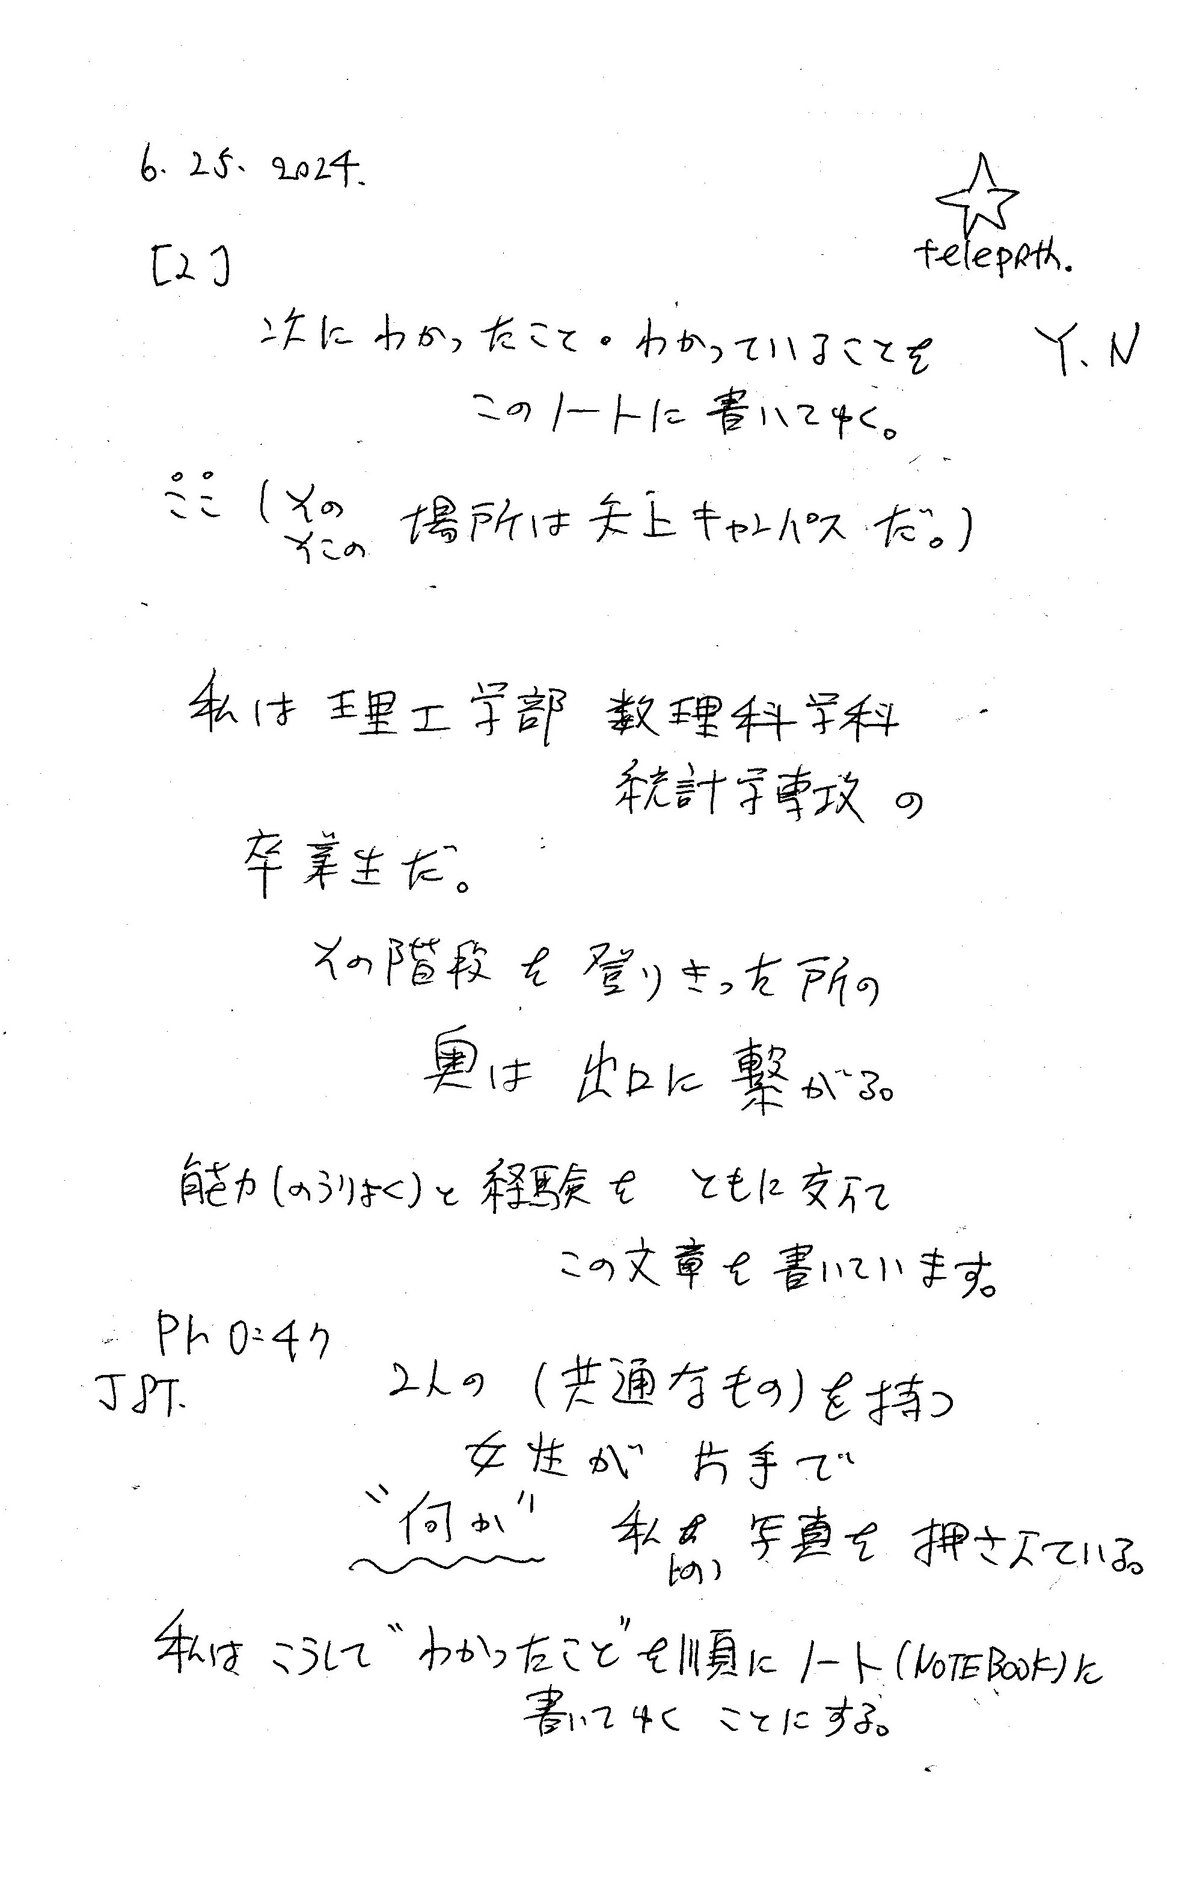 6. 25. 2024.
telepath.
[2]
次にわかったこと。わかっていることを
Y. N
このノートに書いてゆく。
ここ (その 場所は矢上キャンパスだ。)
そこの
私は理工学部 数理科学科
統計学専攻の
卒業生だ。
その階段を登りきった所の
奥は 出口に繋がる。
能力(のうりょく)と経験を ともに交えて
この文章を書いています。
PM 0:47
JST.
2人の (共通なもの)を持つ
女性が 片手で
"何か" 私 写真を押さえている。
(の)
私はこうして"わかったこと"を順にノート(NOTEBOOK)に
書いてゆくことにする。